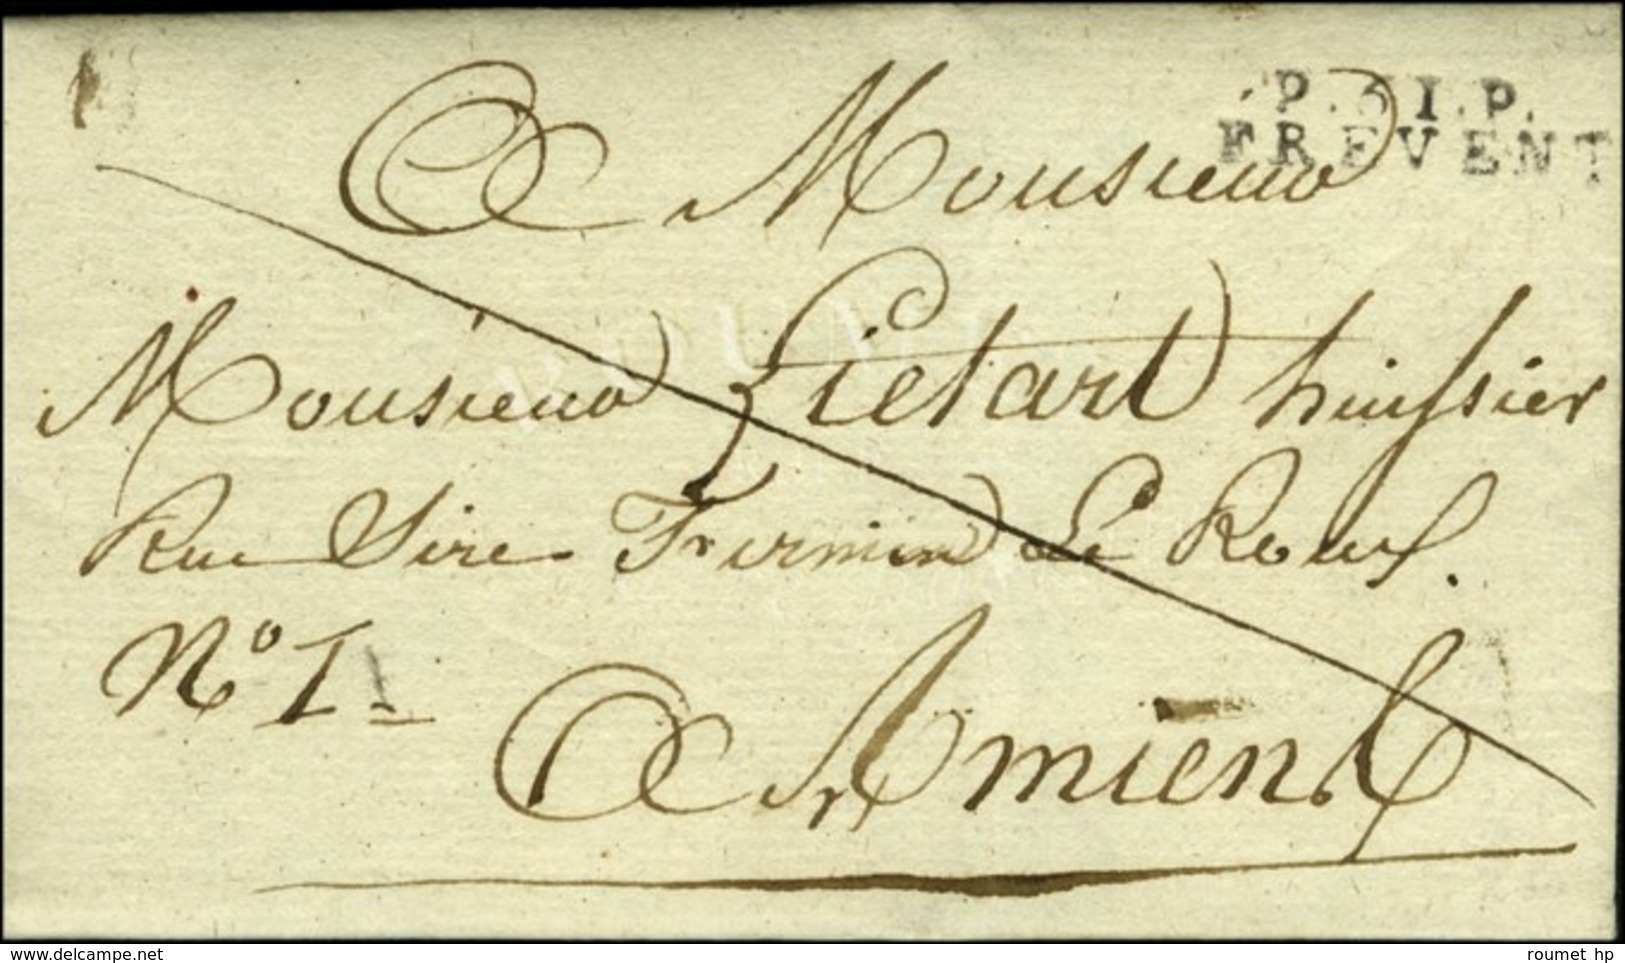 P.61.P.
FREVENT
A Monsieur
Monsieur Lietart huissier
Rue Sire Firmin Le Roux.
N° 1
A Amiens
www.delcampe.net
roumet hp